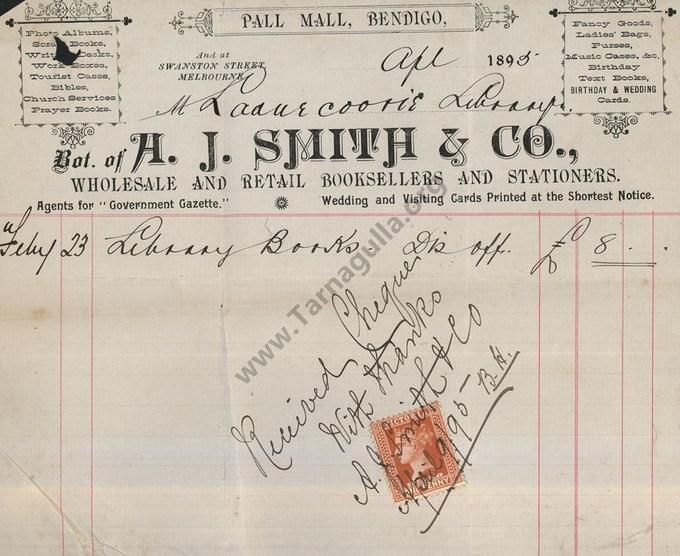 PALL MALL, BENDIGO,
And at
SWANSTON STREET
MELBOURNE
Photo Albums,
Scrap Books,
Writing Desks,
Work Boxes,
Tourist Cases,
Bibles,
Church Services
Prayer Books.
Fancy Goods,
Ladies' Bags,
Purses,
Music Cases, &c.
Birthday
Text Books,
BIRTHDAY & WEDDING
Cards.
Apl 1895
M Laanecoorie Library.
Bot. of A. J. SMITH & CO.,
WHOLESALE AND RETAIL BOOKSELLERS AND STATIONERS.
Agents for "Government Gazette."
Wedding and Visiting Cards Printed at the Shortest Notice.
Feby 23 Library Books. Dis off. £ 8
Received Cheque
With thanks
A J Smith & Co
April 9/95 B.H.
VICTORIA
PENNY
www.Tarnagulla.org